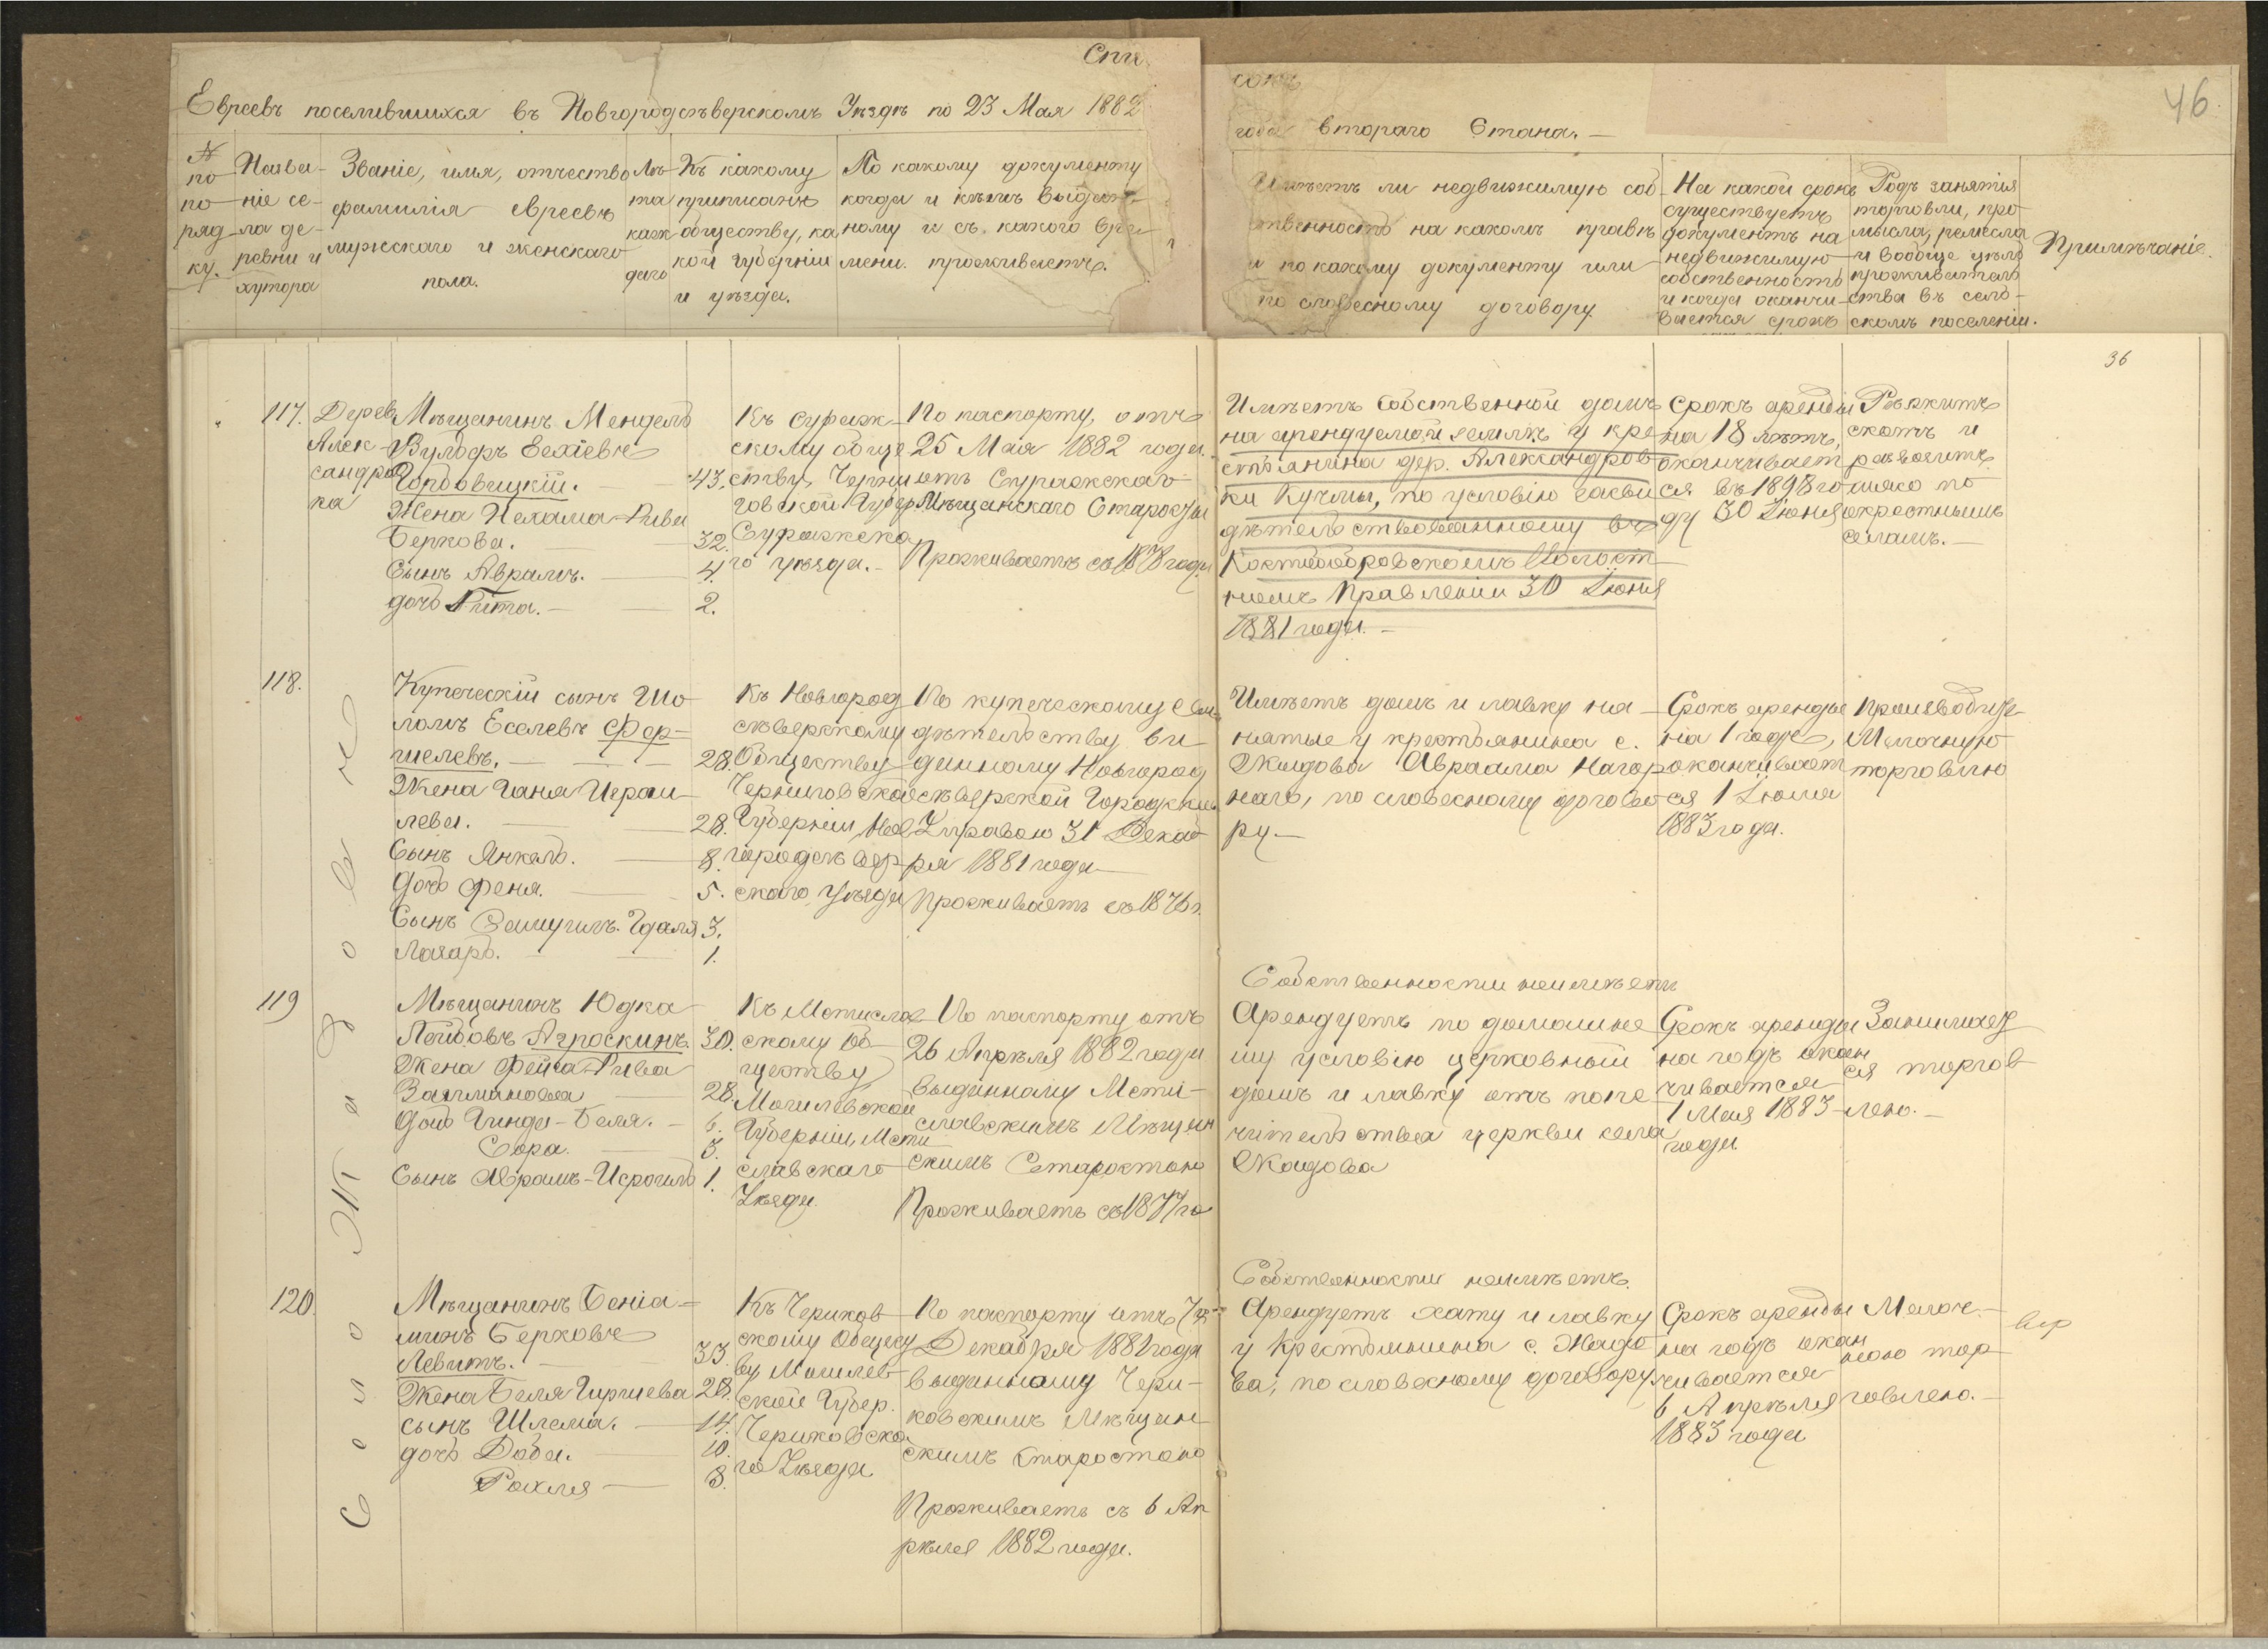 Спи
сокъ
46
Евреевъ поселившихся въ Новгородсѣверскомъ Уѣздѣ по 23 Мая 1882
года втораго Стана. —
№ по по-ряд-ку.
Назва-
ніе се-
ла де-
ревни и
хутора
Званіе, имя, отчество
фамилія евреевъ
мужскаго и женскаго
пола.
Лѣ-
та
каж
даго
Къ какому
приписанъ
обществу, ка
кой губерніи
и уѣзда.
По какому документу
когда и кѣмъ выдан-
ному и съ какого вре
мени проживаетъ.
Имѣетъ ли недвижимую соб-
ственность на какомъ правѣ
и по какому документу или
по словесному договору
На какой срокъ
существуетъ
документъ на
недвижимую
собственность
и когда оканчи-
вается срокъ
Родъ занятія
торговли, про-
мысла, ремесла
и вообще цѣль
прожеватель
ства въ сель-
скомъ поселеніи.
Примѣчаніе.
36
117.
Дерев
Алек-
сандров
ка
Мѣщанинъ Мендель
Вульфъ Ехіевъ
Гордовицкій. — 43.
Жена Нехама-Рива
Беркова. — 32.
Сынъ Аврамъ. — 4.
дочь Рита. — 2.
Къ Сураж-
скому обще
ству, Черни
говской Губер
Суражска
го уѣзда. —
По паспорту, отъ
25 Мая 1882 года
отъ Суражскаго
Мѣщанскаго Старосты
Проживаетъ съ 1878 года
Имѣетъ собственной домъ
на арендуемой землѣ у кре
стьянина дер. Александров
ки Кучмы, по условію засви
дѣтельствованному въ
Костобобровскомъ Волост
номъ Правленіи 30 Іюня
1881 года. —
Срокъ аренды
на 18 лѣтъ,
оканчивает
ся въ 1898 го
ду 30 Іюня
Рѣжитъ
скотъ и
развозитъ
мясо по
окрестнымъ
селамъ. —
Село Жадово
118.
Купеческій сынъ Шо
ломъ Еселевъ Фер-
шелевъ. — 28.
Жена Ганя Израи
лева. — 28.
Сынъ Янкель. — 8.
Дочь Феня. — 5.
Сынъ Гдаля 3.
Лазарь. — 1.
Къ Новгород
сѣверскому
Обществу
Черниговской
Губерніи Нов
городсѣвер-
скаго уѣзда
По купеческому сви
дѣтельству вы
данному Новгород
сѣверской Городской
Управою 31 Декаб
ря 1881 года
Проживаетъ съ 1876 г.
Имѣетъ домъ и лавку на
нятые у крестьянина с.
Жадова Авраама Нагор
наго, по словесному догово
ру. —
Срокъ аренды
на 1 годъ,
оканчивает
ся 1 Іюля
1883 года.
Производитъ
Мелочную
торговлю
119
Мѣщанинъ Юдка
Лейбовъ Агроскинъ. 30.
Жена Фейга-Рива
Залманова — 28.
Дочь Гинда-Беля. — 6.
Сора. — 3.
Сынъ Аврамъ-Исроиль 1.
Къ Мстислав
скому Об
ществу
Могилевской
Губерніи, Мсти
славскаго
Уѣзда.
По паспорту отъ
26 Апрѣля 1882 года
выданному Мсти-
славскимъ Мѣщан
скимъ Старостою
Проживаетъ съ 1877 го
Собственности неимѣетъ
Арендуетъ по домашне
му условію церковный
домъ и лавку отъ попе
чительства церкви села
Жадова
Срокъ аренды
на годъ окан
чивается
1 Мая 1883
года
Занимает
ся торгов
лею. —
120.
Мѣщанинъ Беніа-
минъ Берковъ
Левитъ. — 33.
Жена Беля Гиршева 28.
сынъ Шлема. — 14.
дочь Доба. — 10.
Рохля — 8.
Къ Чериков
скому Общест
ву Могилев
ской Губер.
Чериковска
го Уѣзда
По паспорту отъ
Декабря 1881 года
выданному Чери-
ковскимъ Мѣщан
скимъ Старостою
Проживаетъ съ 6 Ап
рѣля 1882 года.
Собственности неимѣетъ.
Арендуетъ хату и лавку
у Крестьянина с. Жадо
ва, по словесному договору.
Срокъ аренды
на годъ окан
чивается
6 Апрѣля
1883 года
Мелоч-
ною тор
говлею. —